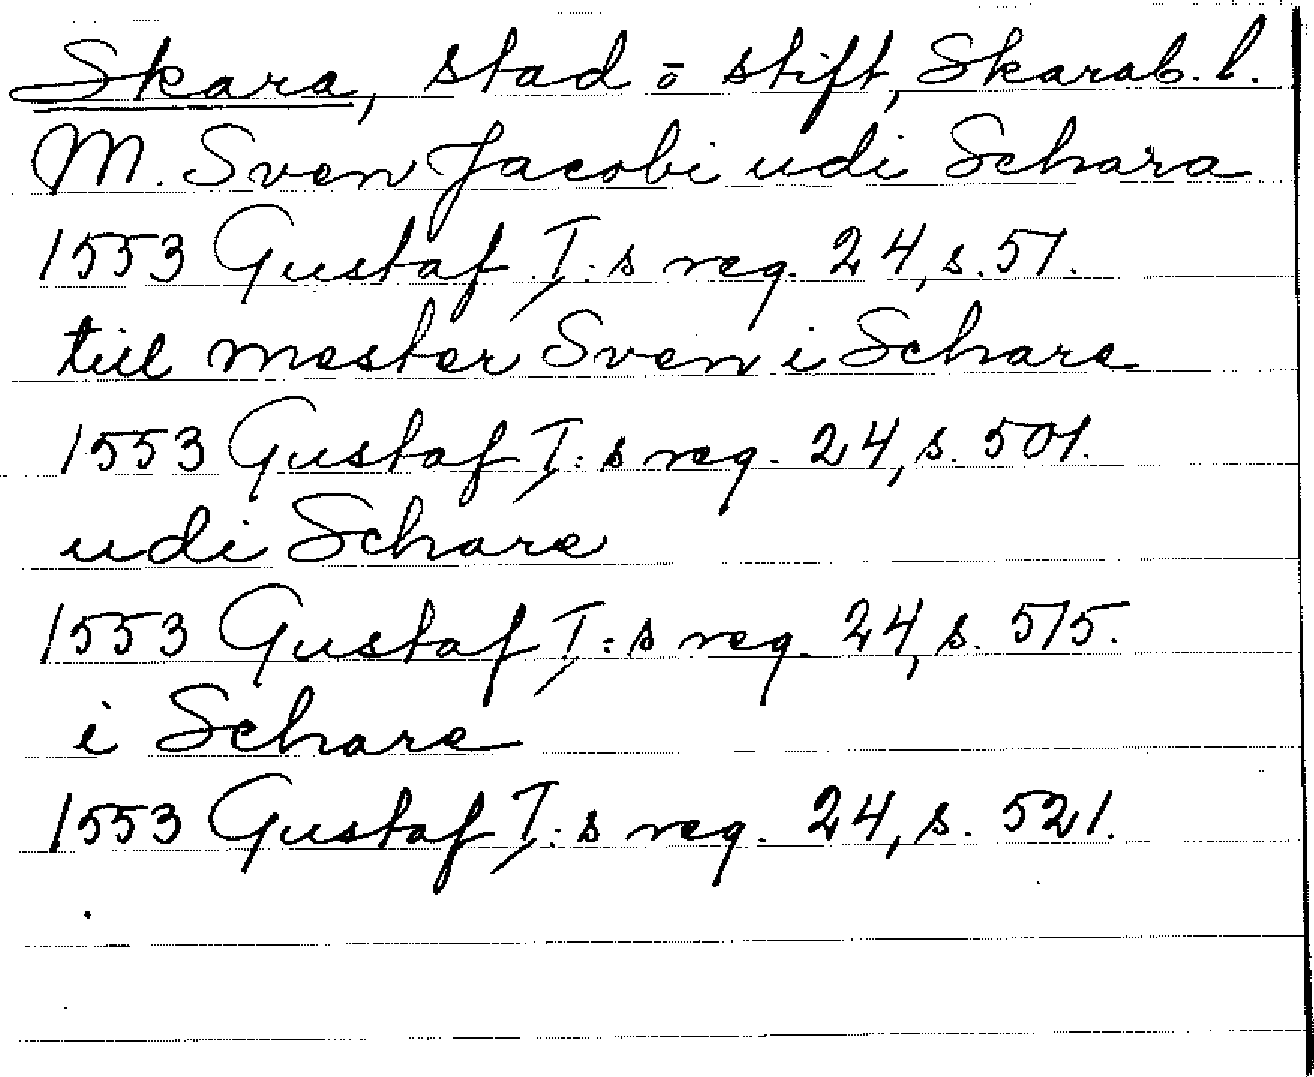 Skara, stad o stift, Skarab. l.
M. Sven Jacobi udi Schara
1553 Gustaf I:s reg. 24, s. 51.
till mester Sven i Schare
1553 Gustaf I:s reg. 24, s. 501.
udi Schare
1553 Gustaf I:s reg. 24, s. 515.
i Schare
1553 Gustaf I:s reg. 24, s. 521.